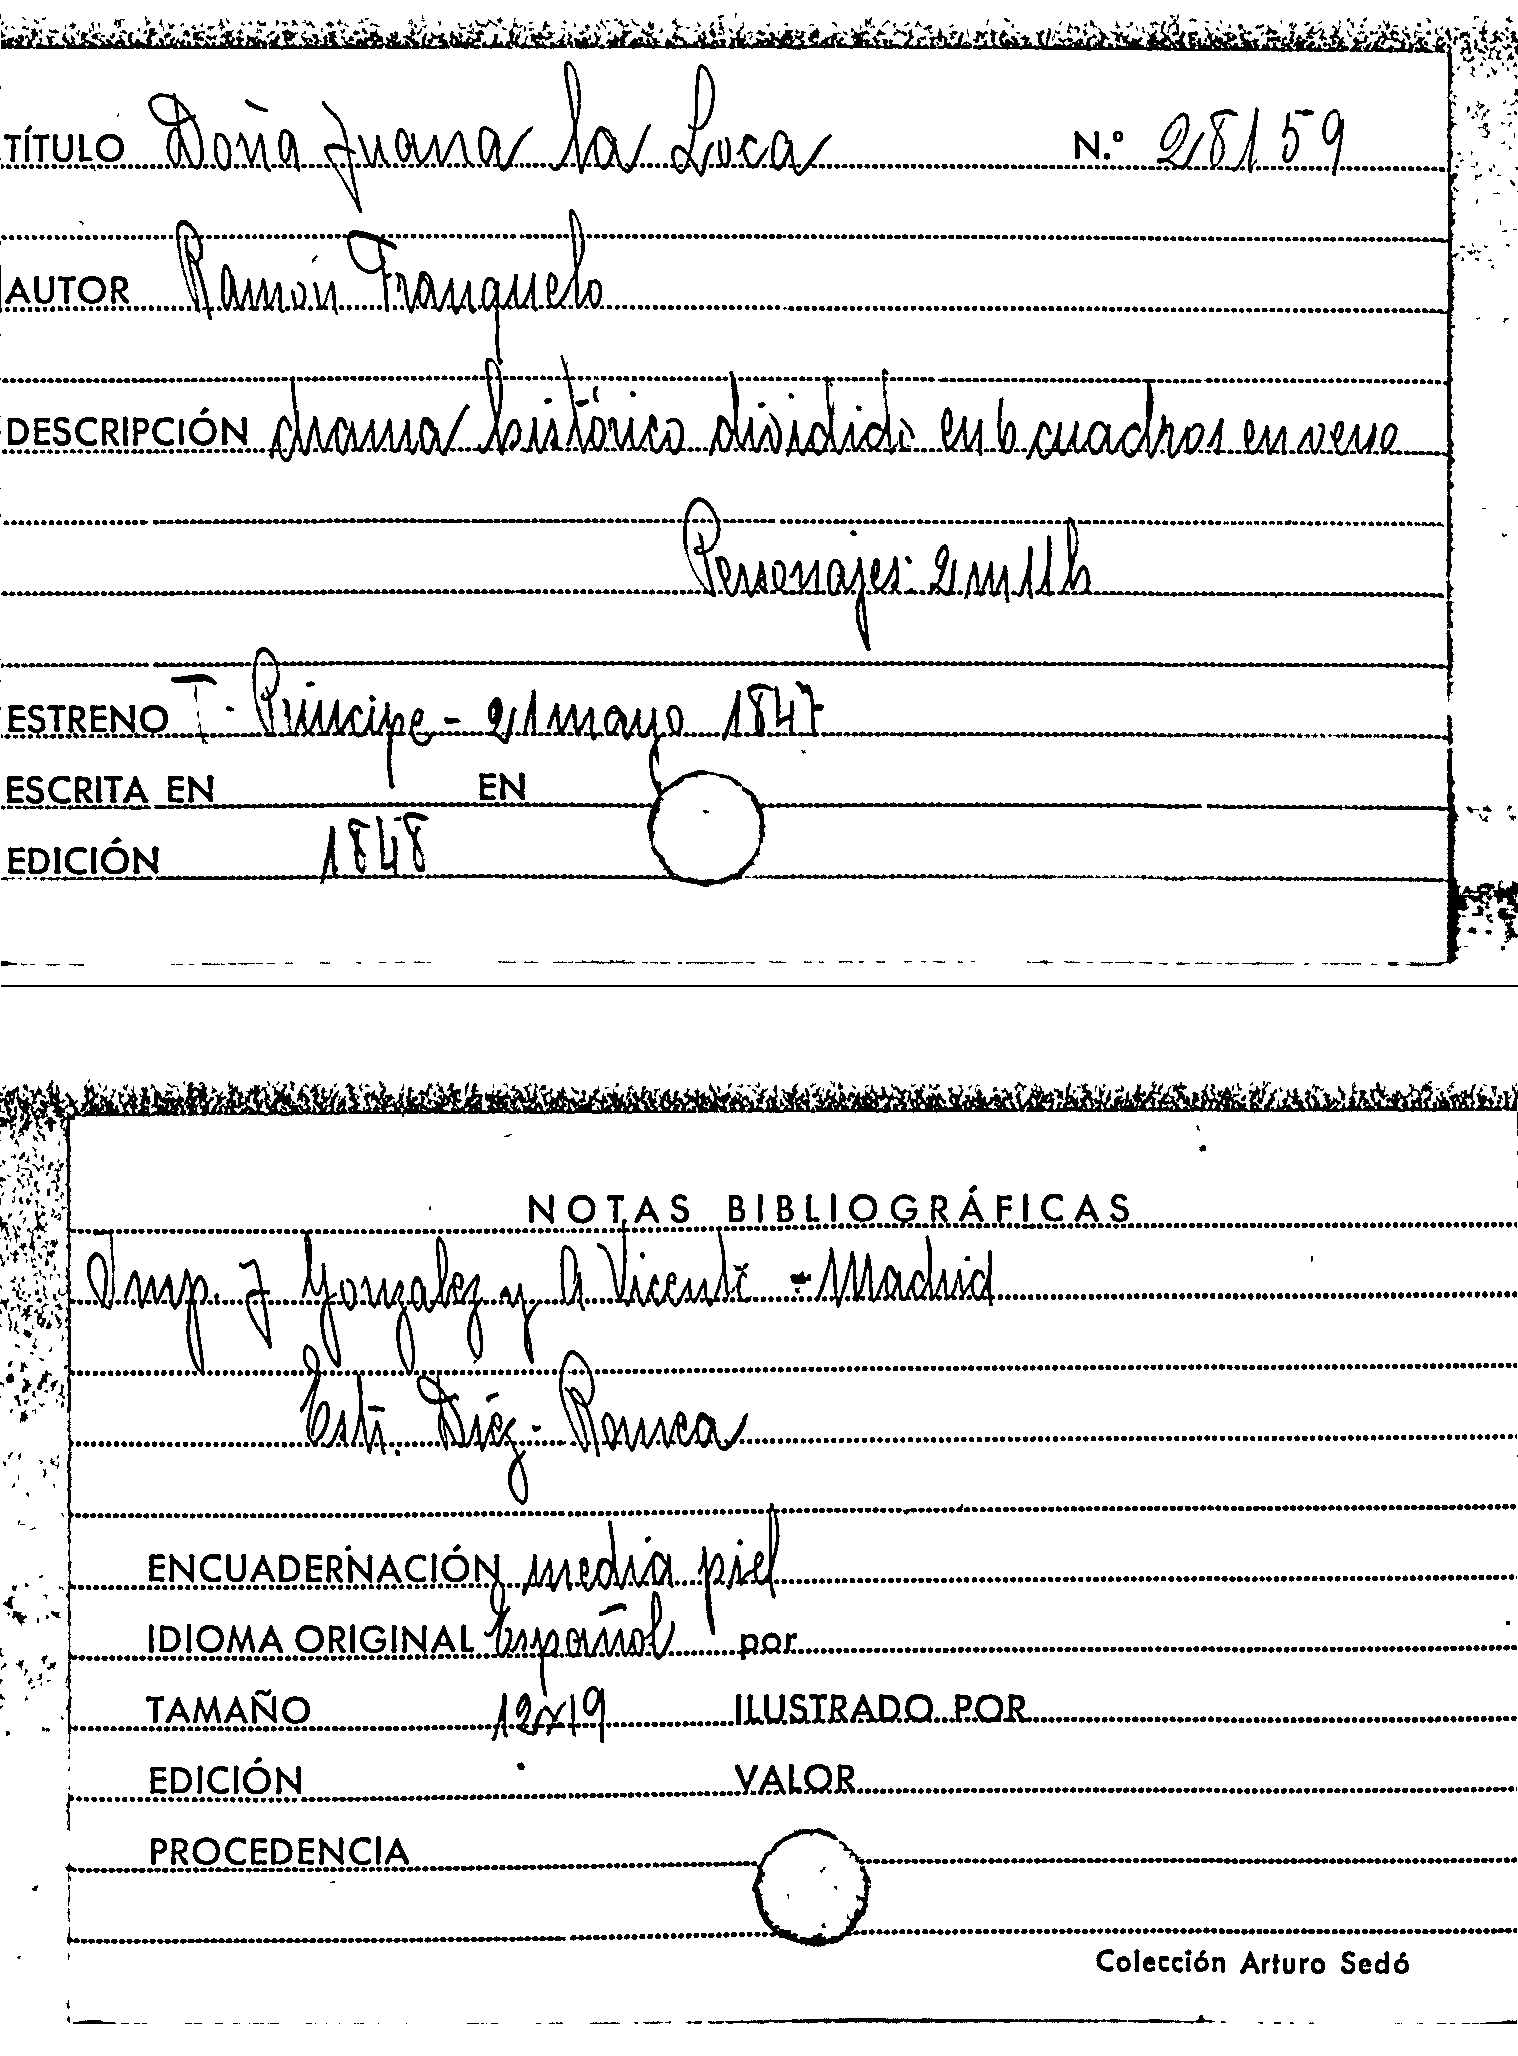 TÍTULO Doña Juana la Loca N.º 28159
AUTOR Ramón Franquelo
DESCRIPCIÓN drama histórico dividido en 6 cuadros en verso
Personajes: 2 m 11 h
ESTRENO T. Príncipe - 21 mayo 1847
ESCRITA EN EN
EDICIÓN 1848
NOTAS BIBLIOGRÁFICAS
Imp. J Gonzalez y A Vicente - Madrid
Diez
ENCUADERNACIÓN media piel
IDIOMA ORIGINAL Español por
TAMAÑO 12x19 ILUSTRADO POR
EDICIÓN VALOR
PROCEDENCIA
Colección Arturo Sedó